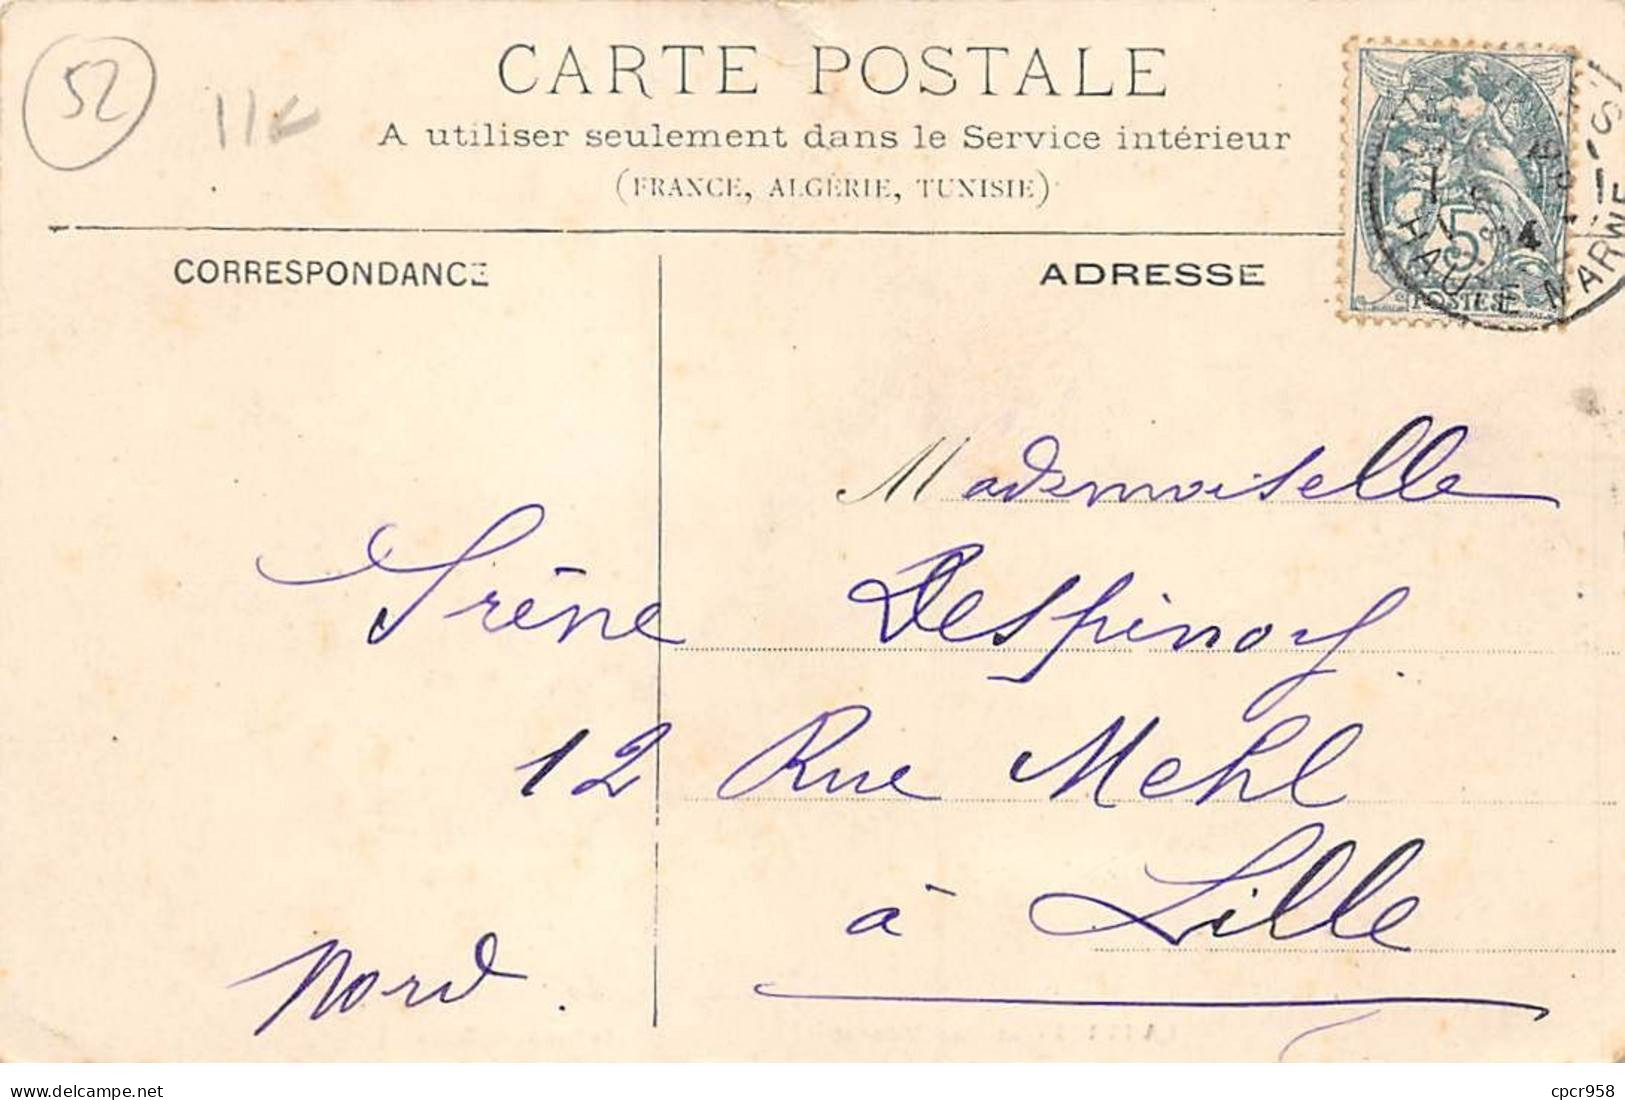 52
CARTE POSTALE
A utiliser seulement dans le Service intérieur
(FRANCE, ALGÉRIE, TUNISIE)
5c
POSTES
HAUTE MARNE
CORRESPONDANCE
ADRESSE
Mademoiselle
Irène Despinoy
12 Rue Mehl
à Lille
Nord.
www.delcampe.net
cpcr958